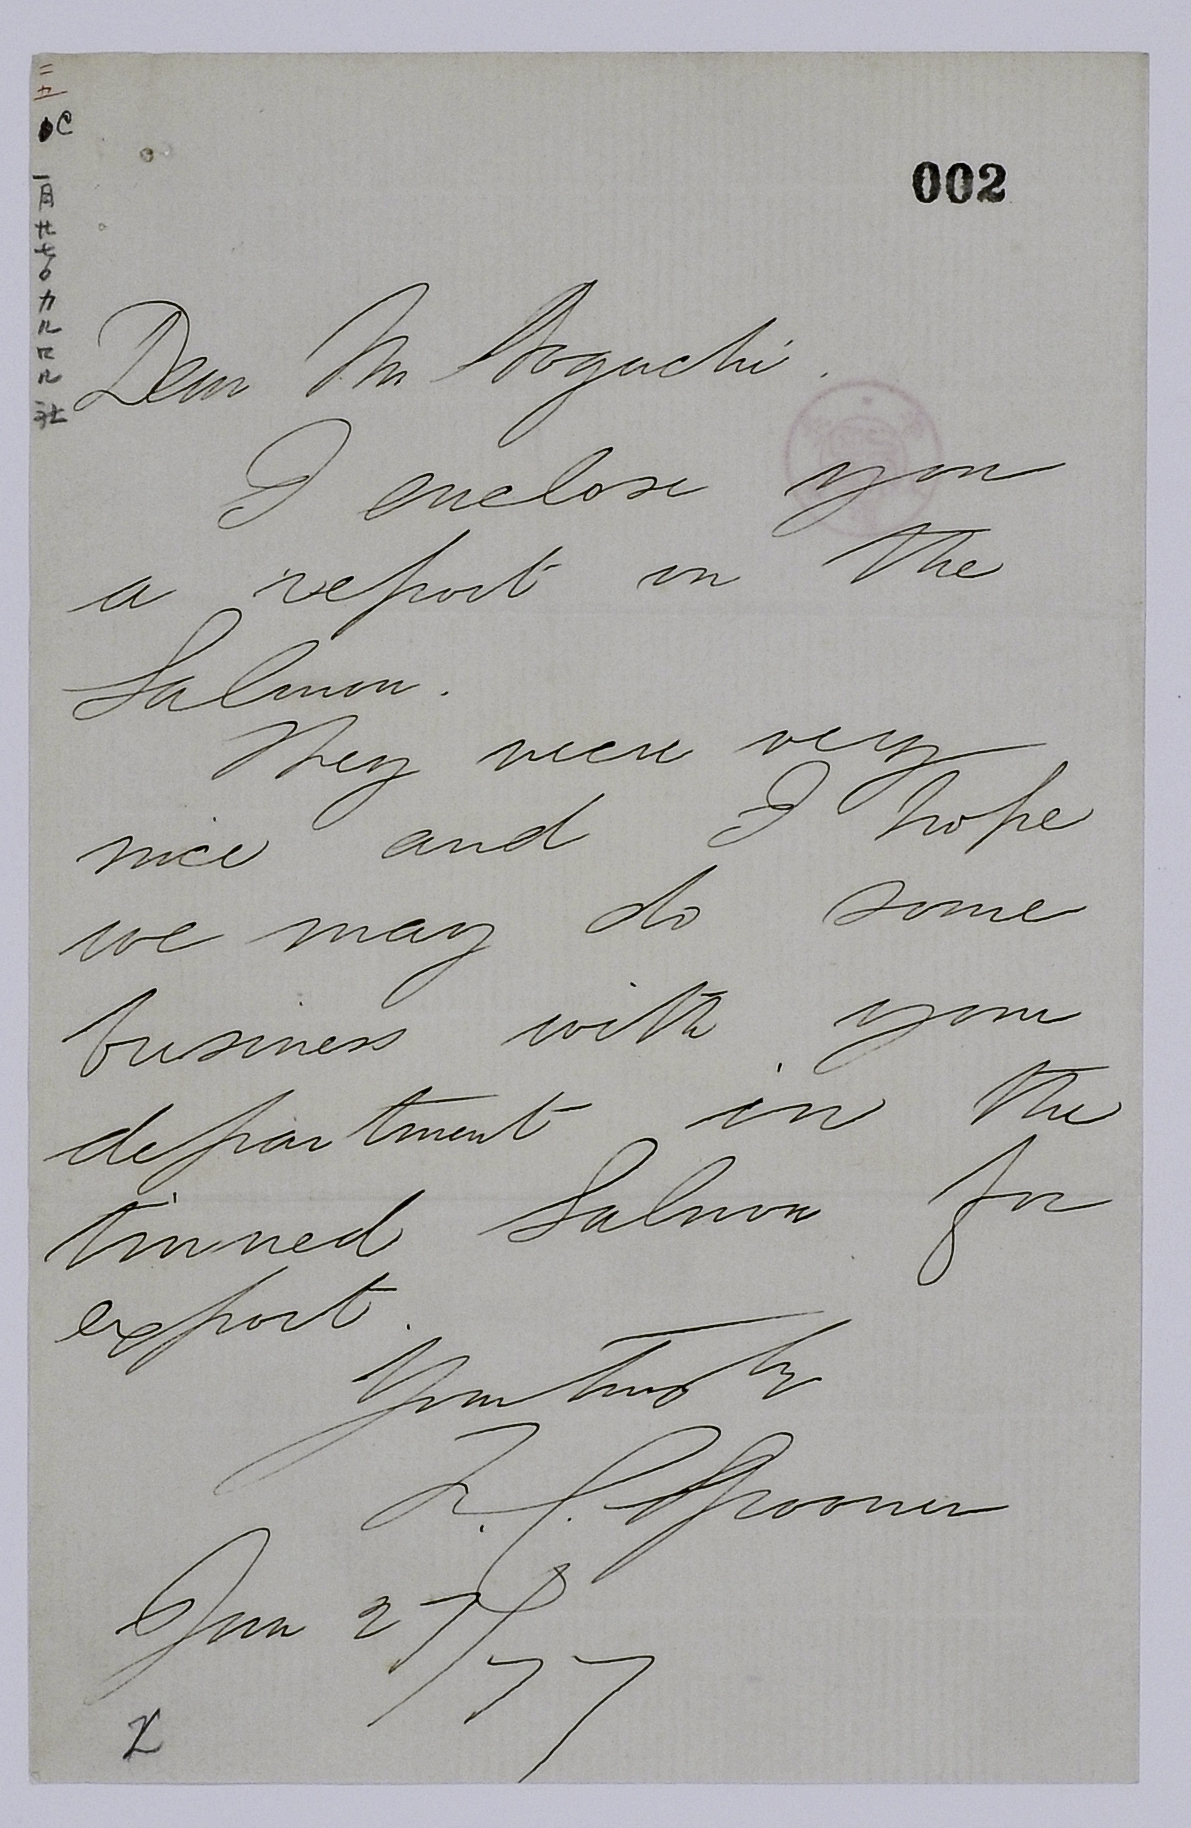 002
二五
C
一月廿七日カルロル社
Dear Mr Noguchi.
I enclose you
a report on the
Salmon.
They were very
nice and I hope
we may do some
business with your
department in the
tinned Salmon for
export.
Yours truly
Spooner
Jan 27/77